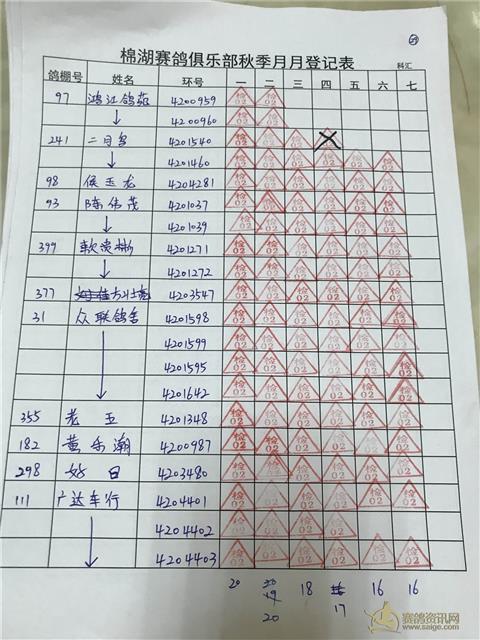 29
棉湖赛鸽俱乐部秋季月月登记表 科汇
鸽棚号 姓名 环号 一 二 三 四 五 六 七
97 鸿江鸽苑 4200959 检02 检02
↓ 4200960 检02 检02
241 二月 4201540 检02 检02 检02 X
↓ 4201460 检02 检02 检02 检02 检02 检02
98 侯玉龙 4204281 检02 检02 检02 检02 检02 检02
93 陈伟茂 4201037 检02 检02 检02 检02 检02 检02
↓ 4201039 检02 检02 检02 检02 检02 检02
399 4201271 检02 检02 检02 检02 检02 检02
↓ 4201272 检02 检02 检02 检02 检02 检02
377 4203547 检02 检02 检02 检02 检02 检02
31 众联鸽舍 4201598 检02 检02 检02 检02 检02 检02
4201599 检02 检02 检02 检02 检02 检02
4201595 检02 检02 检02 检02 检02 检02
↓ 4201642 检02 检02 检02 检02 检02 检02
355 老五 4201348 检02 检02 检02 检02 检02 检02
182 黄乐瀚 4200987 检02 检02 检02 检02 检02 检02
298 好日 4203480 检02 检02 检02 检02 检02 检02
111 广达车行 4204401 检02 检02 检02 检02 检02 检02
4204402 检02 检02 检02 检02
↓ 4204403 检02 检02 检02 检02 检02 检02
20 18 16 16
20 17
赛鸽资讯网
www.saige.com